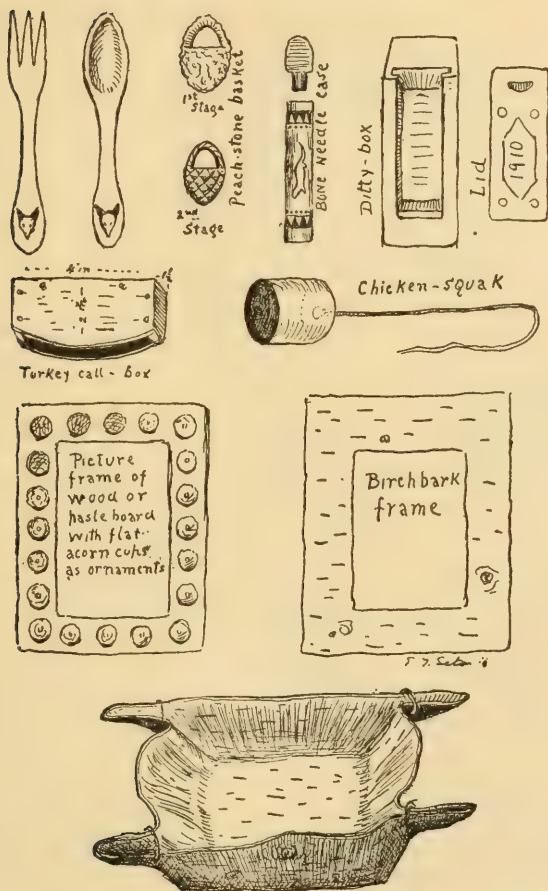 1st
Stage
2nd
Stage
Peach-stone basket
Bone Needle Case
Ditty-box
Lid
1910
4 in
Chicken-squak
Turkey call-box
Picture
frame of
wood or
pasteboard
with flat
acorn cups
as ornaments
Birchbark
frame